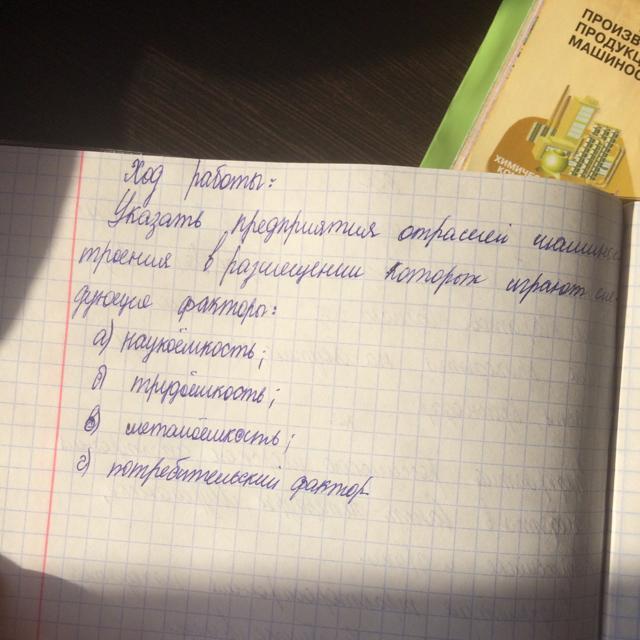 ПРОИЗВ
ПРОДУКЦ
МАШИНОС
ХИМИЧЕС
Ход работы:
Указать предприятия отраслей машинос
троения в размещении которых играют сле-
дующие факторы:
а) наукоёмкость;
б) трудоёмкость;
в) металоёмкость;
г) потребительский фактор